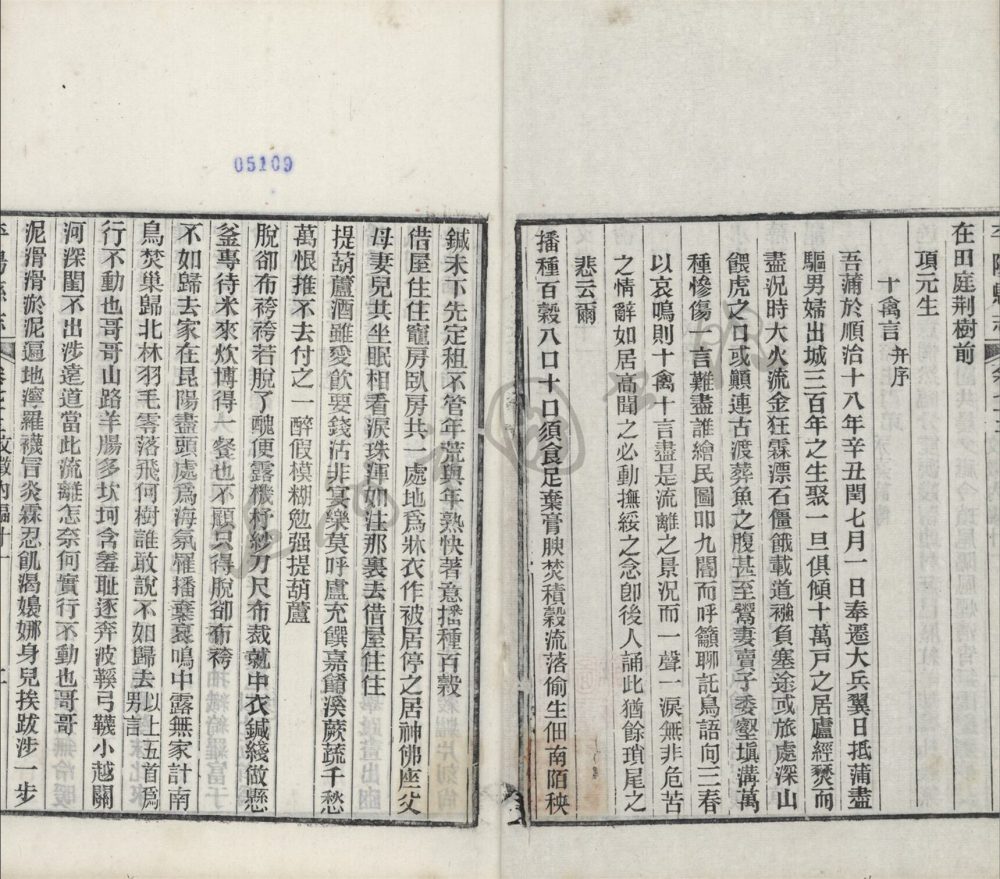 在田庭荆樹前
項元生
十禽言 并序
吾蒲於順治十八年辛丑閏七月一日奉遷大兵翼日抵蒲盡
驅男婦出城三百年之生聚一旦俱傾十萬戸之居廬經燹而
盡況時大火流金狂霖漂石僵餓載道襁負塞途或旅處深山
餵虎之口或顚連古渡葬魚之腹甚至鬻妻賣子委壑塡溝萬
種慘傷一言難盡誰繪民圖叩九閽而呼籲聊託鳥語向三春
以哀鳴則十禽十言盡是流離之景況而一聲一淚無非危苦
之情辭如居高聞之必動撫綏之念卽後人誦此猶餘瑣尾之
悲云爾
播種百穀八口十口須食足棄膏腴焚積穀流落偷生佃南陌秧
鍼未下先定租不管年荒與年熟快著意播種百穀
借屋住住竈房臥房共一處地爲牀衣作被居停之居神佛座父
母妻兒共坐眠相看淚珠渾如注那裏去借屋住住
提葫蘆酒雖愛飲要錢沽非宴樂莫呼盧充饌嘉餚溪蕨蔬千愁
萬恨推不去付之一醉假模糊勉强提葫蘆
脫卻布袴袴若脫了醜便露機杼紗刀尺布裁就中衣鍼綫做懸
釜專待米來炊博得一餐也不顧只得脫卻布袴
不如歸去家在昆陽盡頭處爲海氛罹播棄哀鳴中露無家計南
鳥焚巢歸北林羽毛零落飛何樹誰敢說不如歸去 以上五首爲男言
行不動也哥哥山路羊腸多坎坷含羞恥逐奔波鞵弓韈小越關
河深閨不出涉遠道當此流離怎奈何實行不動也哥哥
泥滑滑淤泥遍地溼羅襪冒炎霖忍飢渴嬝娜身兒挨跋涉一步
05109